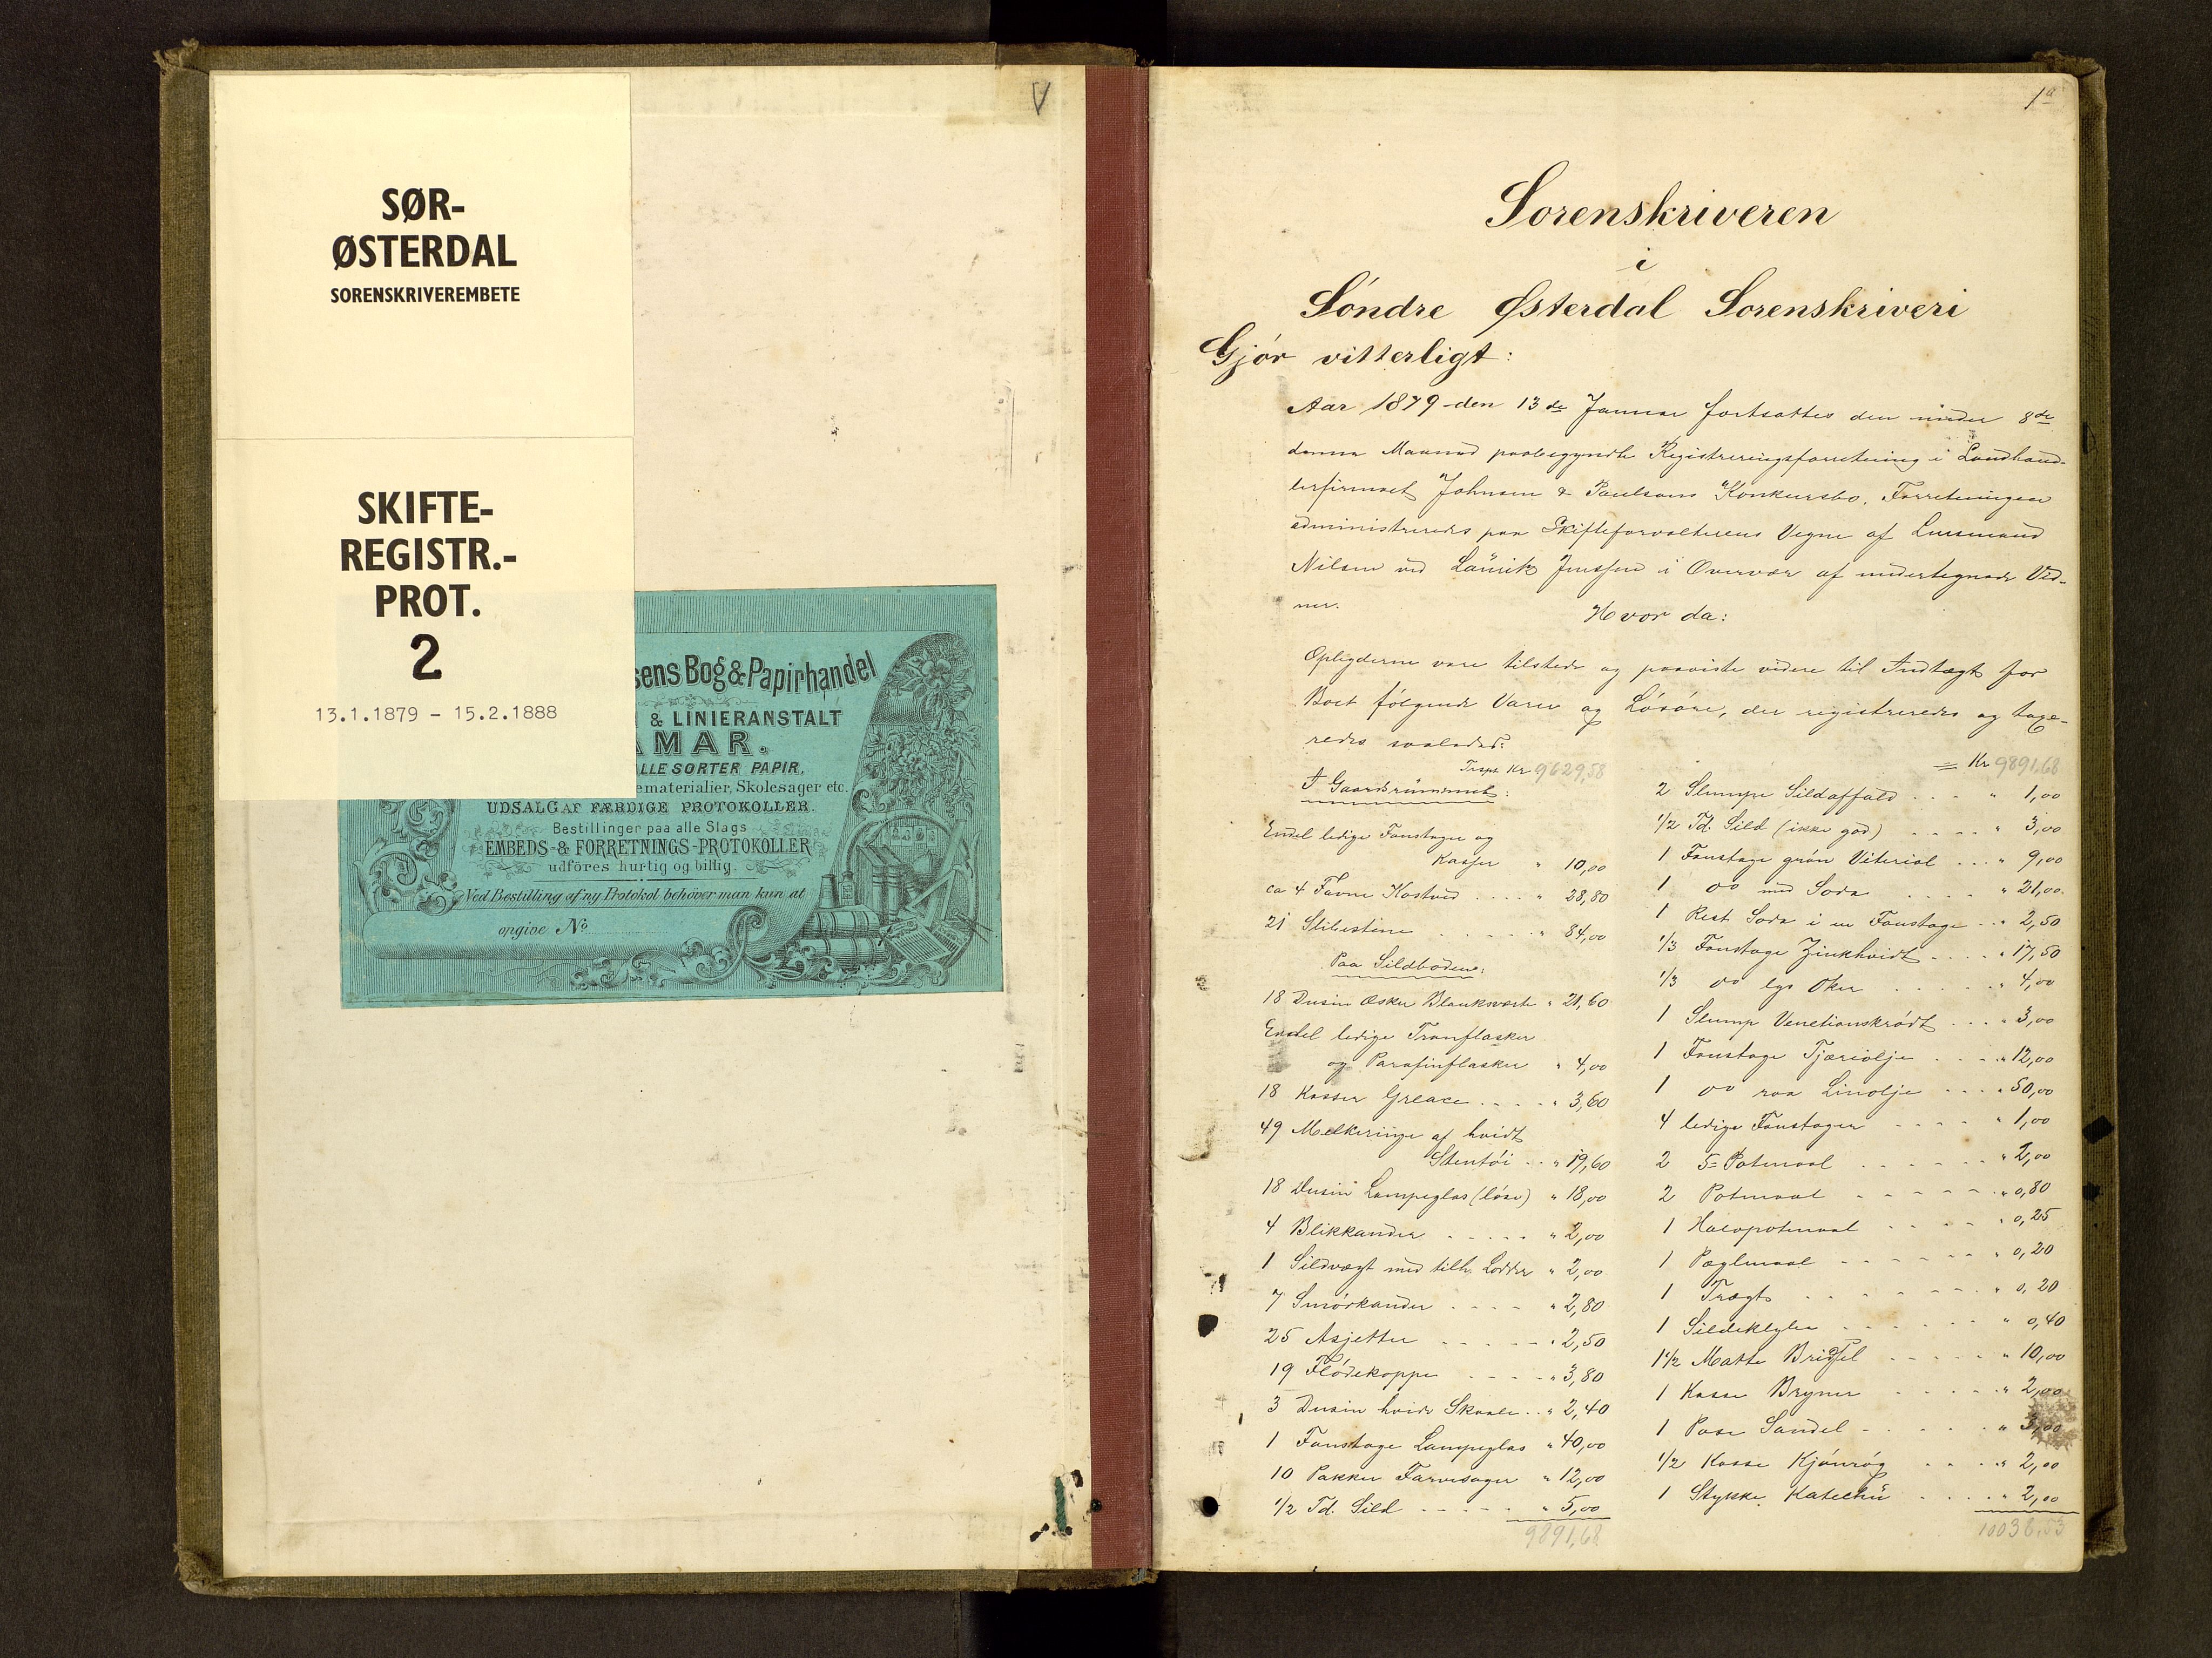 SØR-
ØSTERDAL
SORENSKRIVEREMBETE
SKIFTE-
REGISTR.-
PROT.
2
13.1.1879 - 15.2.1888
sens Bog & Papirhandel
& LINIERANSTALT
AMAR.
ALLE SORTER PAPIR,
ematerialier, Skolesager etc.
UDSALG AF FÆRDIGE PROTOKOLLER.
Bestillinger paa alle Slags
EMBEDS- & FORRETNINGS-PROTOKOLLER
udföres hurtig og billig.
Ved Bestilling af ny Protokol behöver man kun at
opgive No
1a
Sorenskriveren
i
Söndre Østerdal Sorenskriveri
Gjör vitterligt:
Aar 1879 den 13de Januar fortsattes den under 8de
denne Maaned paabegyndte Registreringsforretning i Landhand-
lerfirmaet Johnsen & Paulsens Konkursbo. Forretningen
administreredes paa Skifteforvalterens Vegne af Lensmand
Nilsen ved Jenssen i Overvær af undertegnede Vid-
ner.
Hvor da:
Opbyderne vare tilstede og paaviste videre til Indtægt for
Boet fölgende Varer og Lösöre, der registreredes og taxe-
redes saaledes:
Trspt. Kr 9629,58
I Gaardsrummet:
Endel ledige Foustager og
Kasser " 10,00
ca 4 Favne Kastved .... " 28,80
21 Slibestene ..... " 84,00
Paa Sildboden:
18 Dusin Æsker Blanksværte " 21,60
Endel ledige Tranflasker
og Parafinflasker " 4,00
18 Kasser Greace .... " 3,60
49 Melkeringe af hvidt
Stentöi .. " 19,60
18 Dusin Lampeglas (löse) " 18,00
4 Blikkander ..... " 2,00
1 Sildvægt med tilh. Lodder " 2,00
7 Smörkander .... " 2,80
25 Asjetter ..... " 2,50
19 Flödekoppe .... " 3,80
3 Dusin hvide Skaale .. " 2,40
1 Foustage Lampeglas " 40,00
10 Pakker Farvesager " 12,00
1/2 Td. Sild ..... " 5,00
9891,68
= Kr 9891,68
2 Slumpe Sildaffald ... " 1,00
1/2 Td. Sild (ikke god) .... " 3,00
1 Foustage grön Viteriol ... " 9,00
1 do med Soda .... " 21,00
1 Rest Soda i en Foustage .. " 2,50
1/3 Foustage Zinkhvidt .... " 17,50
1/3 do lys Oker ..... " 4,00
1 Slump Venetianskrödt ... " 3,00
1 Foustage Tjæreolje .... " 12,00
1 do raa Linolje .... " 50,00
4 ledige Foustager .... " 1,00
2 5= Potmaal ..... " 2,00
2 Potmaal ..... " 0,80
1 Halvpotmaal .... " 0,25
1 Pæglmaal ..... " 0,20
1 Trægt ...... " 0,20
1 Sildeklype ..... " 0,40
1 1/2 Matte ..... " 10,00
1 Kasse Bryner .... " 2,00
1 Pose Sandel ..... " 3,00
1/2 Kasse Kjönrög .... " 2,00
1 Stykke Katechu .... " 2,00
10038,53